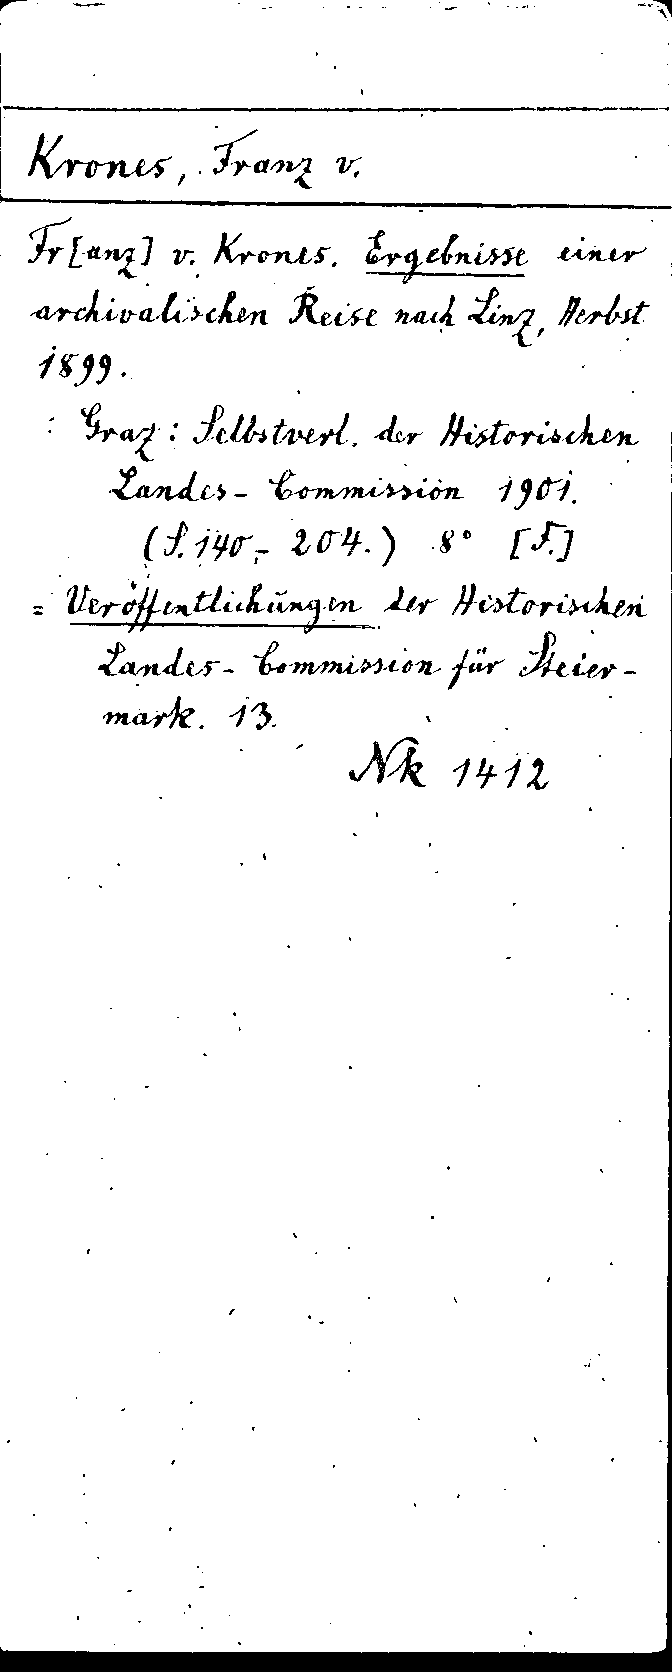 Krones, Franz v.
Fr[anz] v. Krones. Ergebnisse einer
archivalischen Reise nach Linz, Herbst
1899.
Graz: Selbstverl. der Historischen
Landes-Commission 1901.
(S. 140-204.) 8° [F.]
= Veröffentlichungen der Historischen
Landes-Commission für Steier-
mark. 13.
Nk 1412